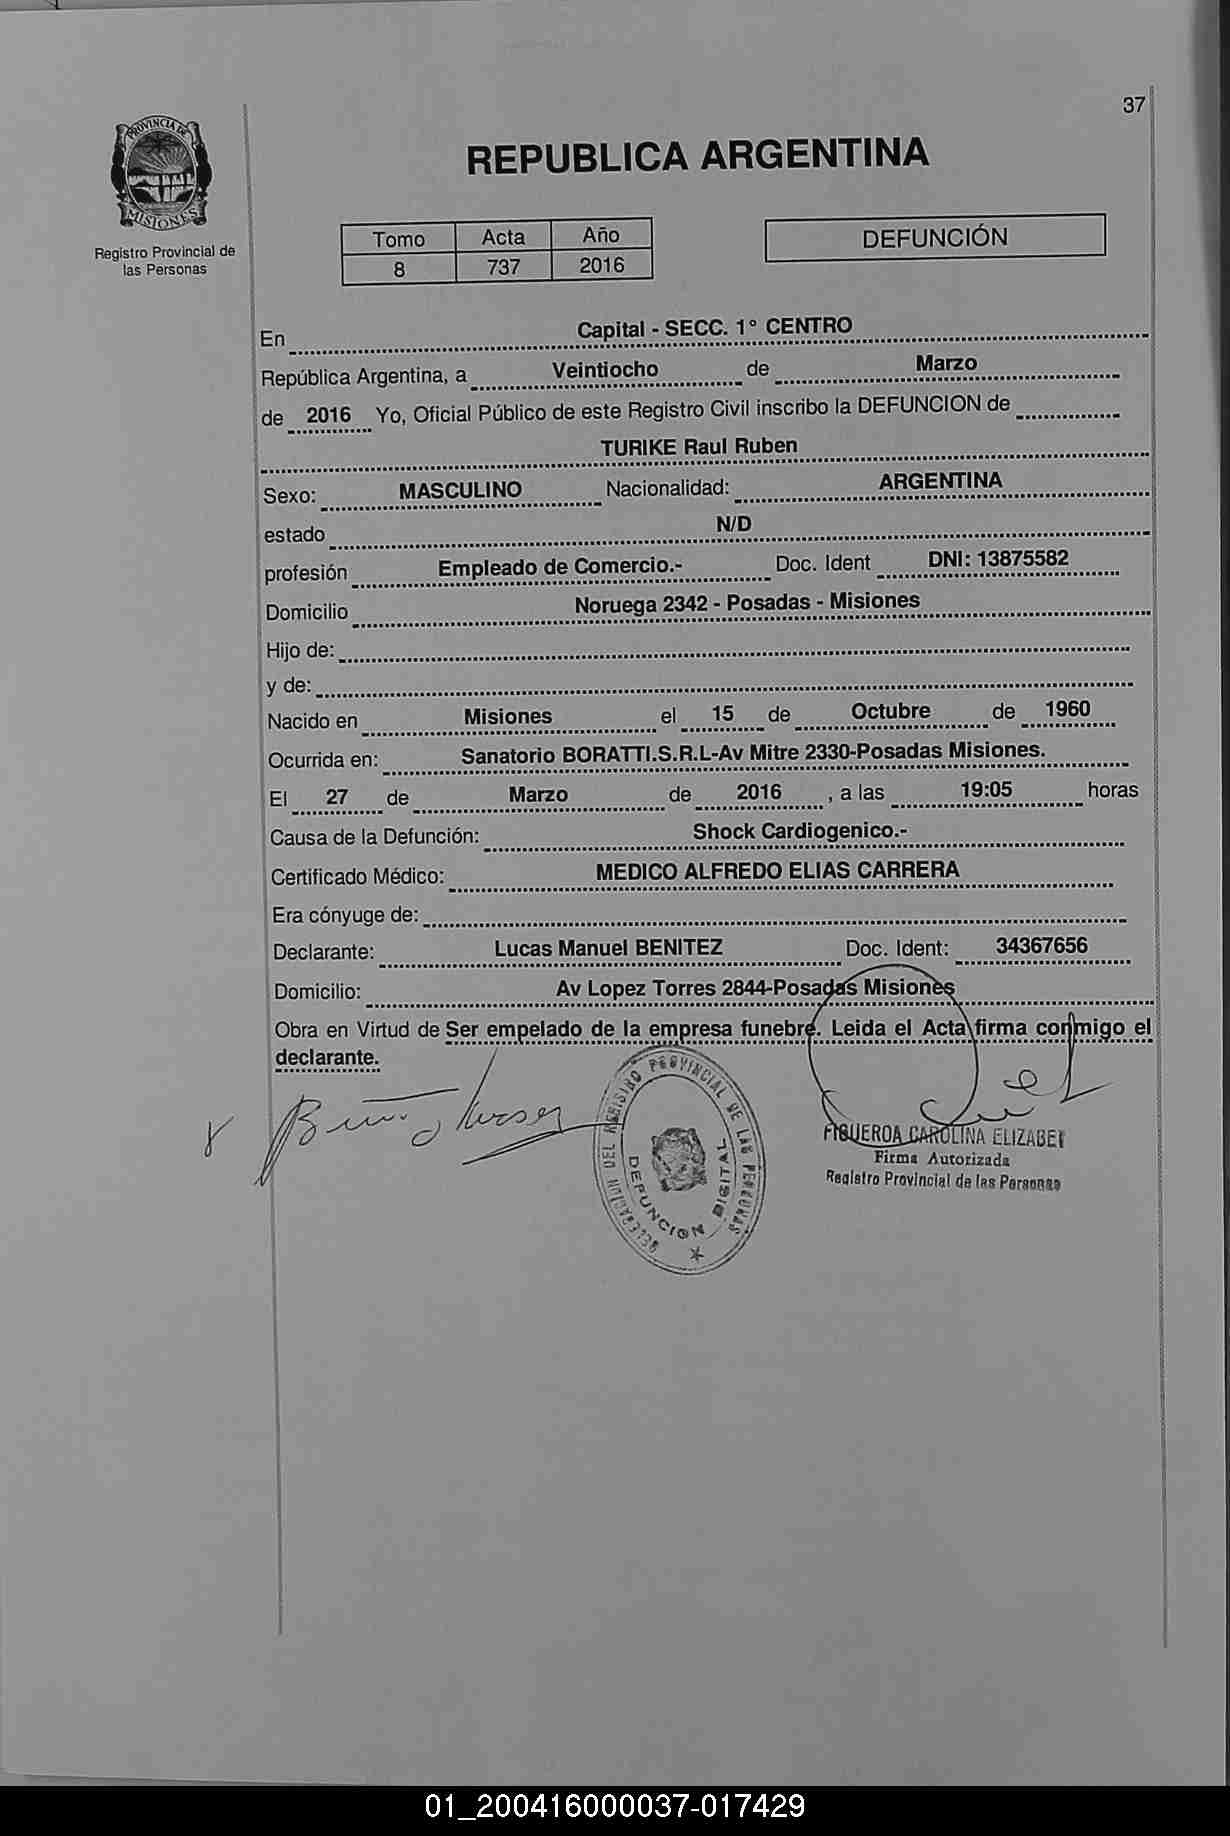 37
PROVINCIA DE
MISIONES
Registro Provincial de
las Personas
REPUBLICA ARGENTINA
Tomo Acta Año
8 737 2016
DEFUNCIÓN
En Capital - SECC. 1° CENTRO
República Argentina, a Veintiocho de Marzo
de 2016 Yo, Oficial Público de este Registro Civil inscribo la DEFUNCION de
TURIKE Raul Ruben
Sexo: MASCULINO Nacionalidad: ARGENTINA
estado N/D
profesión Empleado de Comercio.- Doc. Ident DNI: 13875582
Domicilio Noruega 2342 - Posadas - Misiones
Hijo de:
y de:
Nacido en Misiones el 15 de Octubre de 1960
Ocurrida en: Sanatorio BORATTI.S.R.L-Av Mitre 2330-Posadas Misiones.
El 27 de Marzo de 2016 , a las 19:05 horas
Causa de la Defunción: Shock Cardiogenico.-
Certificado Médico: MEDICO ALFREDO ELIAS CARRERA
Era cónyuge de:
Declarante: Lucas Manuel BENITEZ Doc. Ident: 34367656
Domicilio: Av Lopez Torres 2844-Posadas Misiones
Obra en Virtud de Ser empelado de la empresa funebre. Leida el Acta firma conmigo el
declarante.
DELEGACION DEL REGISTRO PROVINCIAL DE LAS PERSONAS
DEFUNCION DIGITAL
FIGUEROA CAROLINA ELIZABET
Firma Autorizada
Registro Provincial de las Personas
01_200416000037-017429